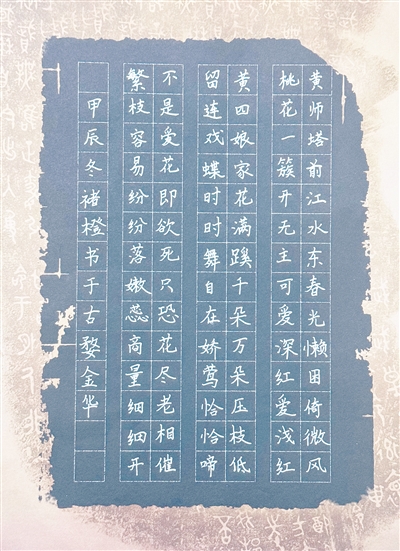 黄师塔前江水东春光懒困倚微风
桃花一簇开无主可爱深红爱浅红
黄四娘家花满蹊千朵万朵压枝低
留连戏蝶时时舞自在娇莺恰恰啼
不是爱花即欲死只恐花尽老相催
繁枝容易纷纷落嫩蕊高量细细开
甲辰冬褚橙书于古婺金华